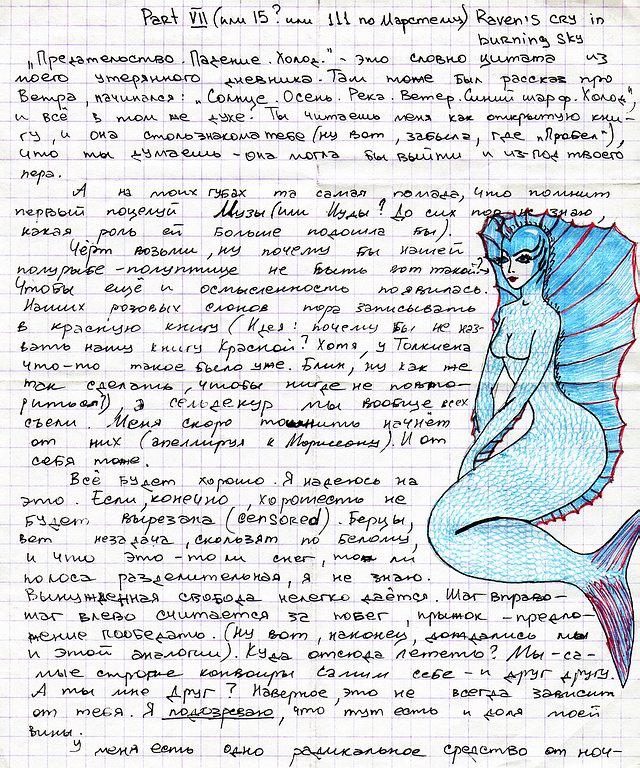 Part VII (или 15? или 111 по Марстему) Raven's cry in
burning sky
„Предательство. Падение. Холод." - это словно цитата из
моего утерянного дневника. Там тоже был рассказ про
Ветра, начинался: „Солнце. Осень. Река. Ветер. Синий шарф. Холод"
и всё в том же духе. Ты читаешь меня как открытую кни-
гу, и она столь знакома тебе (ну вот, забыла, где „Пробел"),
что ты думаешь - она могла бы выйти и из-под твоего
пера.
А на моих губах та самая помада, что помнит
первый поцелуй Музы (или Иуды? До сих пор не знаю,
какая роль ей больше подошла бы).
Чёрт возьми, ну почему бы нашей
полурыбе-полуптице не быть вот такой?
Чтобы ещё и осмысленность появилась.
Наших розовых слонов пора записывать
в красную книгу (Идея: почему бы не наз-
вать нашу книгу Красной? Хотя, у Толкиена
что-то такое было уже. Блин, ну как же
так сделать, чтобы нигде не повто-
риться?), а сельдекур мы вообще всех
съели. Меня скоро тошнить начнёт
от них (апеллируя к Моррисону). И от
себя тоже.
Всё будет хорошо. Я надеюсь на
это. Если, конечно, хорошесть не
будет вырезана (censored). Берцы,
вот незадача, скользят по белому,
и что это - то ли снег, то ли
полоса разделительная, я не знаю.
Вынужденная свобода нелегко даётся. Шаг вправо-
шаг влево считается за побег, прыжок - предло-
жение пообедать. (ну вот, наконец, дождались мы
и этой аналогии). Куда отсюда лететь? Мы - са-
мые строгие конвоиры самим себе - и друг другу.
А ты мне друг? Наверное, это не всегда зависит
от тебя. Я подозреваю, что тут есть и доля моей
вины.
У меня есть одно радикальное средство от ноч-